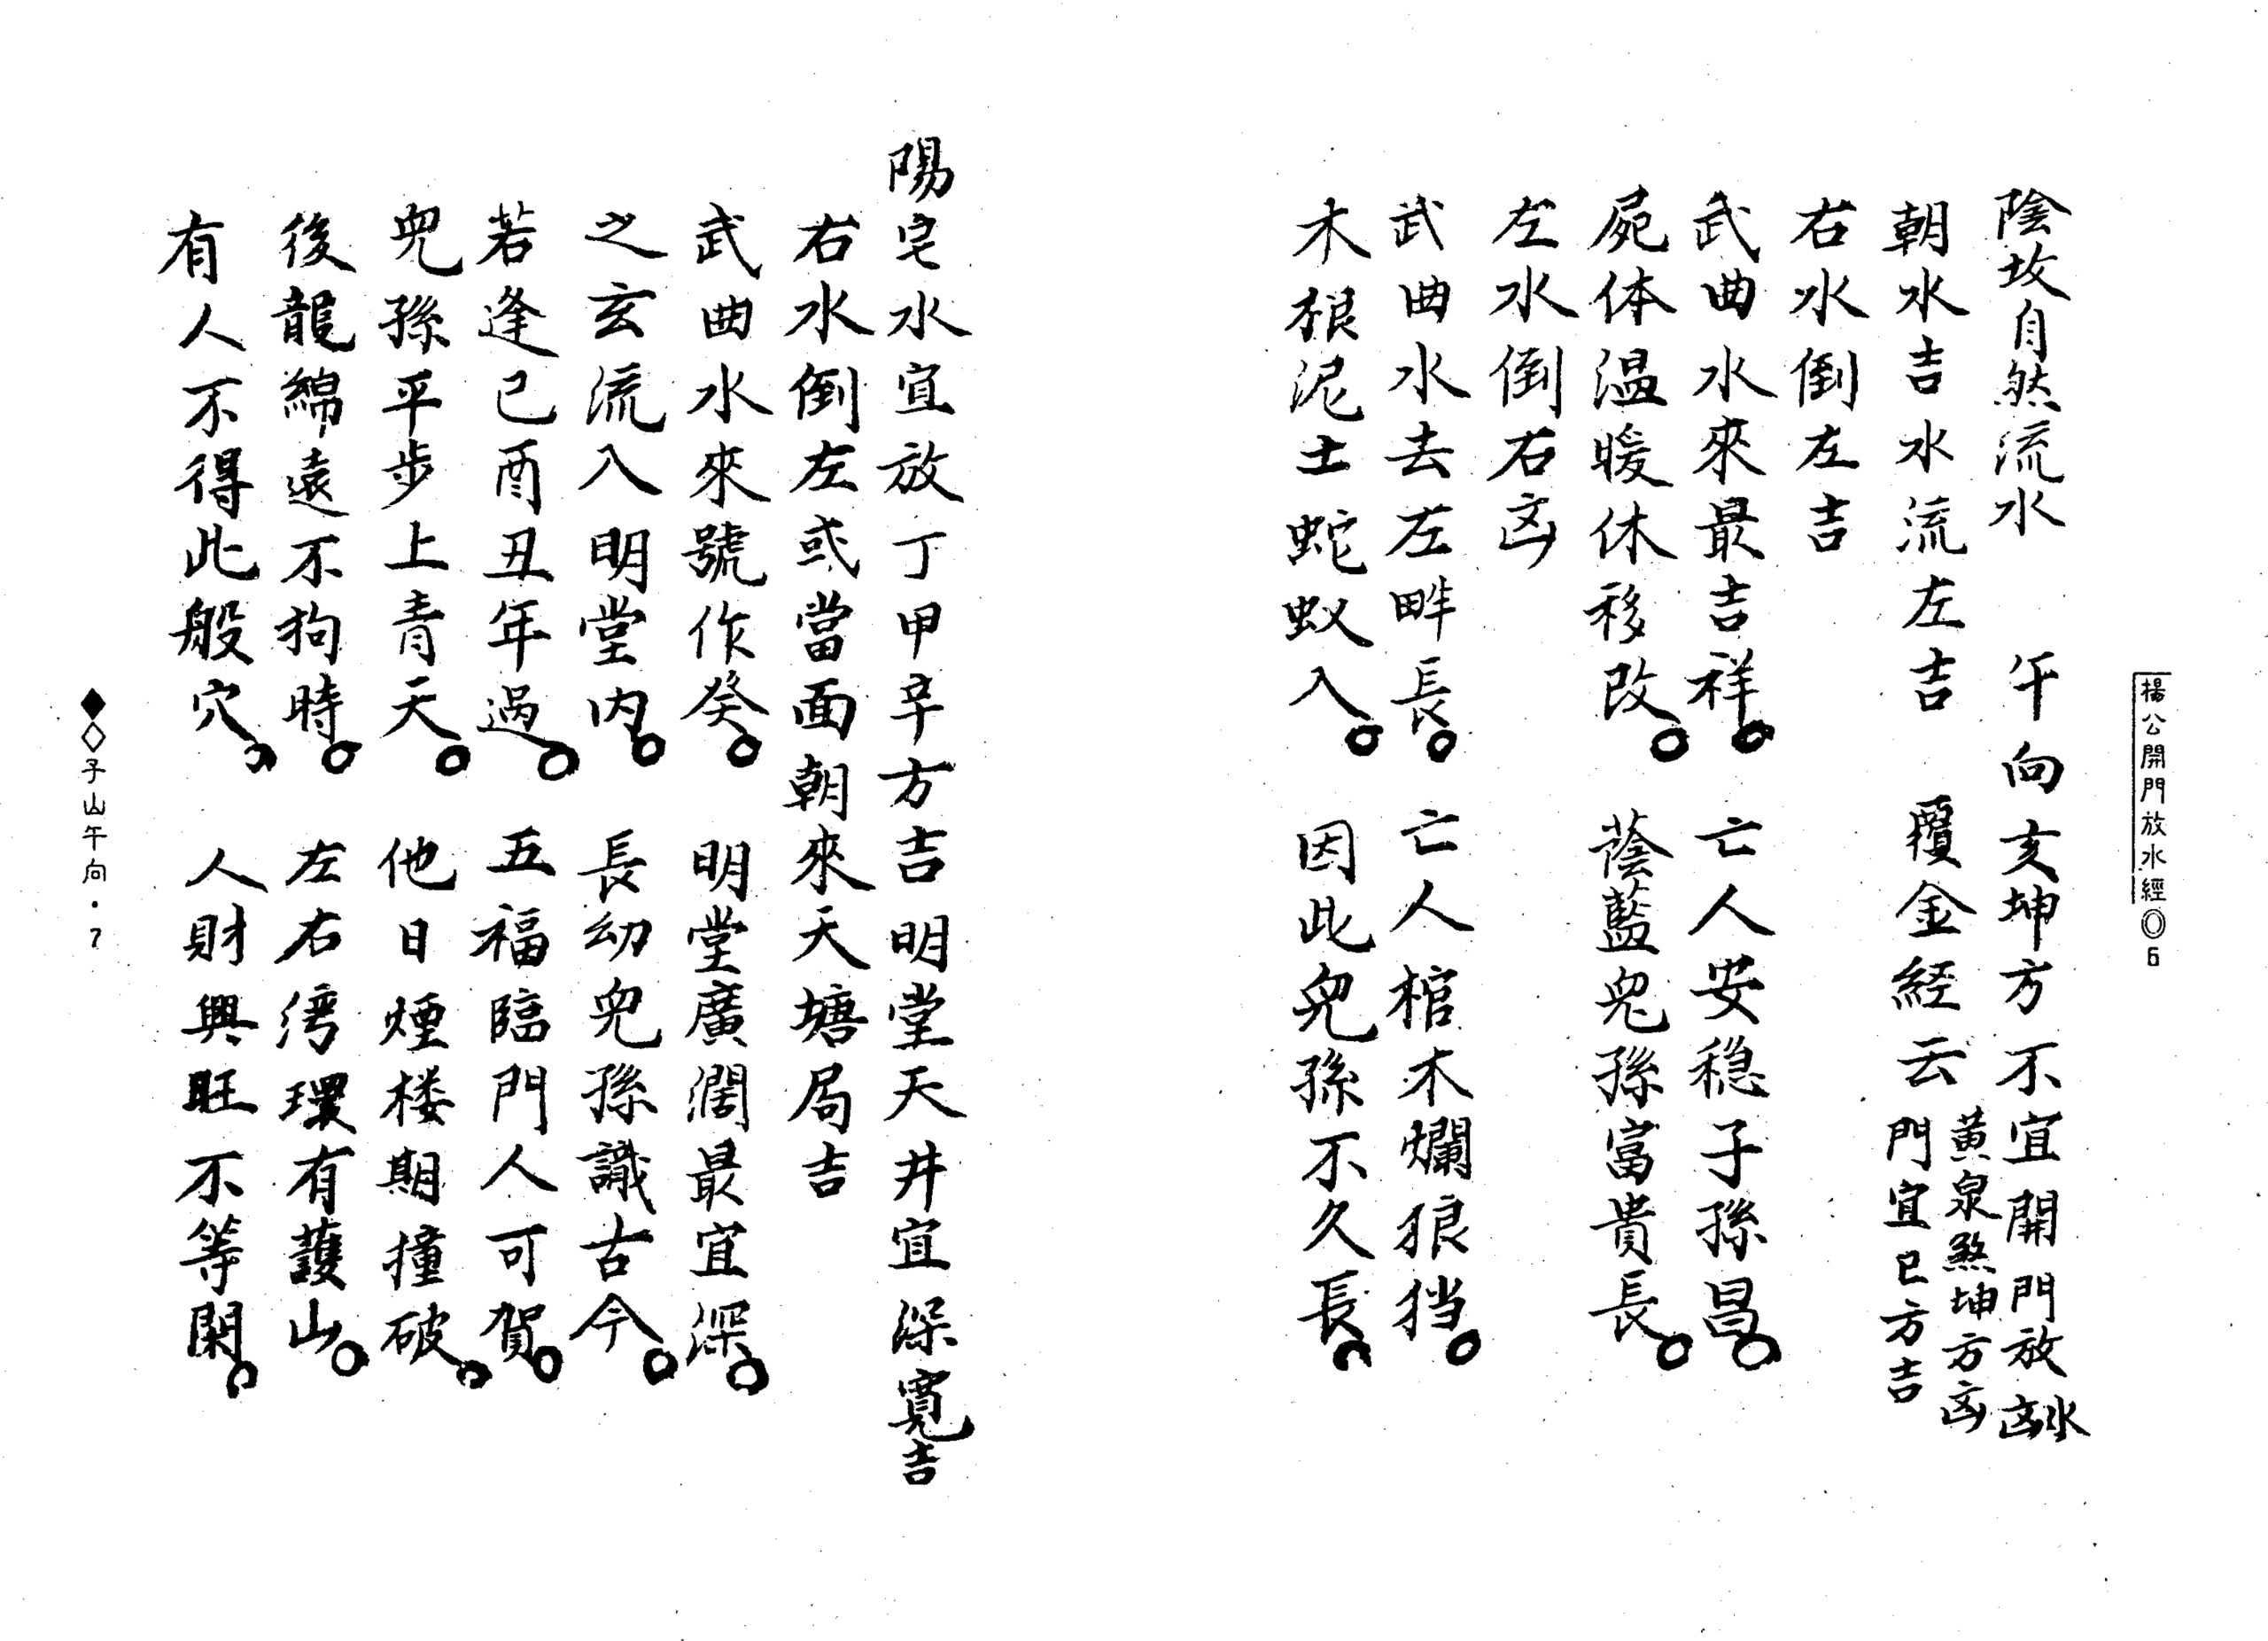 楊公開門放水經 6
陰坟自然流水　午向亥坤方不宜開門放水凶
黄泉煞坤方凶
朝水吉水流左吉　覆金経云門宜巳方吉
右水倒左吉
武曲水來最吉祥。亡人安穏子孫昌。
屍体温暖休移改。蔭藍兒孫富貴長。
左水倒右凶
武曲水去左畔長。亡人棺木爛狼挡。
木根泥土蛇蚁入。因此兒孫不久長。
陽宅水宜放丁甲辛方吉明堂天井宜深寬吉
右水倒左或當面朝來天塘局吉
武曲水來號作癸。明堂廣濶最宜深。
之玄流入明堂内。長幼兒孫識古今。
若逢巳酉丑年過。五福臨門人可賀。
兒孫平步上青天。他日煙楼期撞破。
後龍綿遠不狗時。左右湾環有護山。
有人不得此般穴。人財興旺不等閑。
子山午向・7